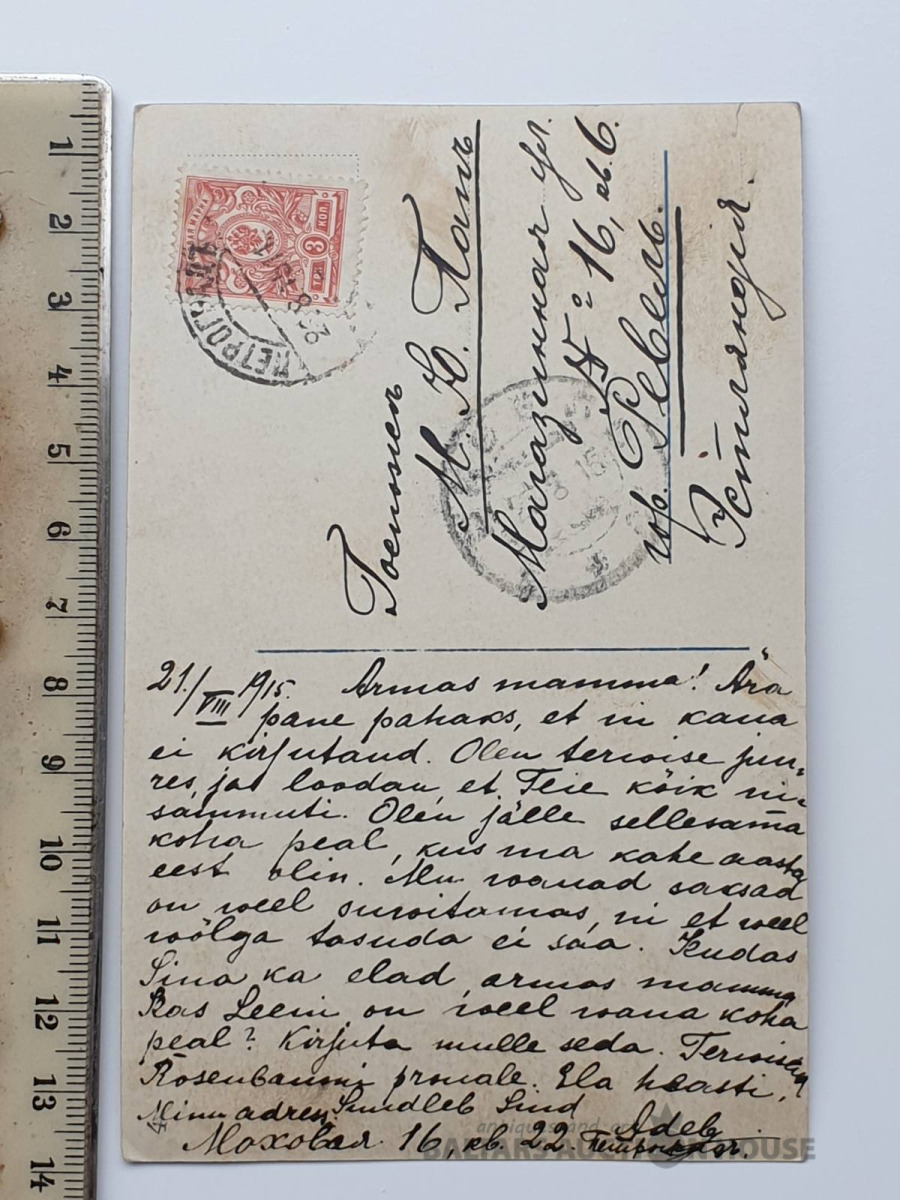 1
2
3
4
5
6
7
8
9
10
11
12
13
14
3 КОП.
ТРИ
ПЕТРОГРАД
Госпожѣ
М. Ю. Папъ
Магазинная ул.
№ 16, кв. 6.
гор. Ревель.
Эстляндія.
8 15
21./VIII 1915. Armas mamma! Ära
pane pahaks, et ni kaua
ei kirjutand. Olen terwise juu-
res, ja loodan, et Teie kõik ni-
sammuti. Olen jälle sellesama
koha peal, kus ma kahe aasta
eest olin. Mu wanad saksad
on weel suwitamas, ni et weel
wõlga tasuda ei saa. Kudas
Sina ka elad, armas mamma
Kas Leeni on weel wana koha
peal? Kirjuta mulle seda. Terwisid
Rosenbaumi prouale. Ela hästi,
Suudleb Sind
Minu adress Adel
Моховая 16, кв. 22 Петроград.
antiques and art
BALTARS AUCTION HOUSE